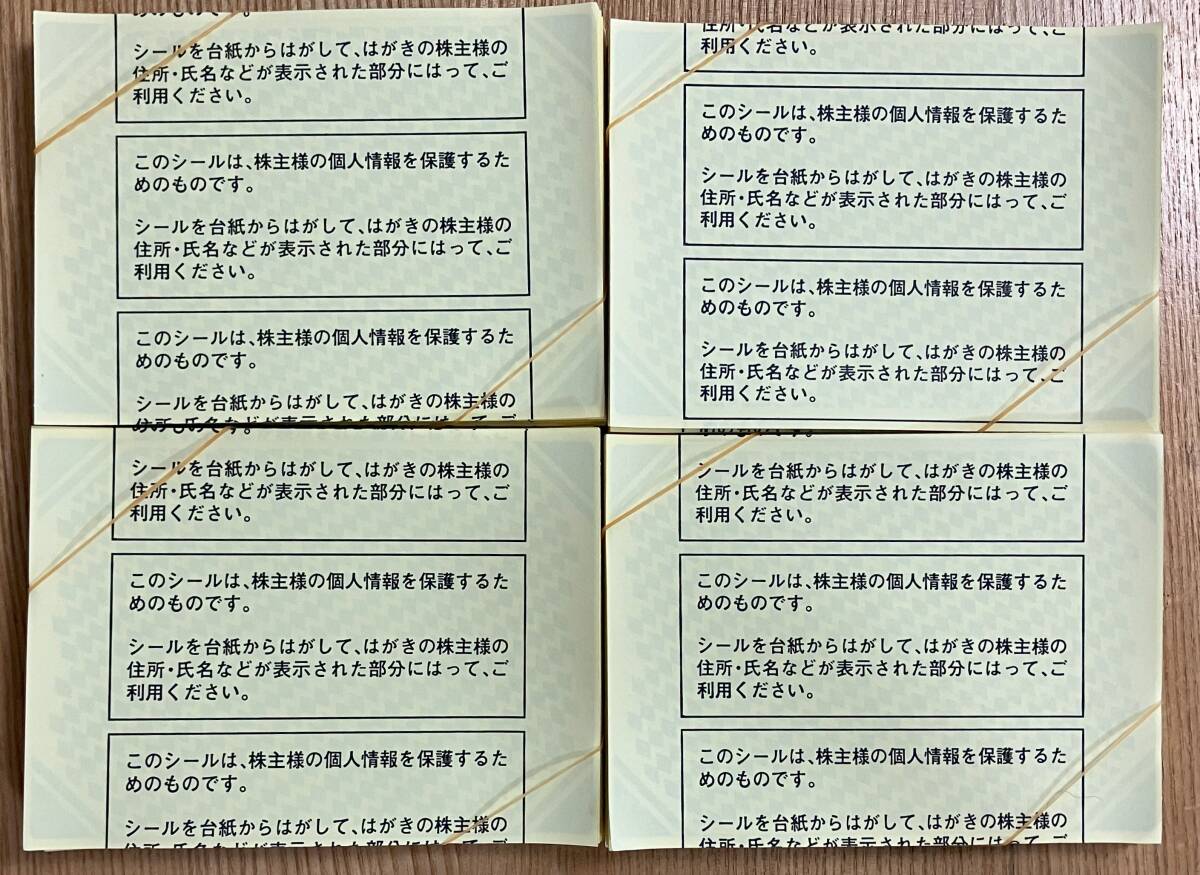 めのものです。
シールを台紙からはがして、はがきの株主様の
住所・氏名などが表示された部分にはって、ご
利用ください。
このシールは、株主様の個人情報を保護するた
めのものです。
シールを台紙からはがして、はがきの株主様の
住所・氏名などが表示された部分にはって、ご
利用ください。
このシールは、株主様の個人情報を保護するた
めのものです。
シールを台紙からはがして、はがきの株主様の
住所・氏名などが表示された部分にはって、ご
住所・氏名などが表示された部分にはって、ご
利用ください。
このシールは、株主様の個人情報を保護するた
めのものです。
シールを台紙からはがして、はがきの株主様の
住所・氏名などが表示された部分にはって、ご
利用ください。
このシールは、株主様の個人情報を保護するた
めのものです。
シールを台紙からはがして、はがきの株主様の
住所・氏名などが表示された部分にはって、ご
利用ください。
めのものです。
シールを台紙からはがして、はがきの株主様の
住所・氏名などが表示された部分にはって、ご
利用ください。
このシールは、株主様の個人情報を保護するた
めのものです。
シールを台紙からはがして、はがきの株主様の
住所・氏名などが表示された部分にはって、ご
利用ください。
このシールは、株主様の個人情報を保護するた
めのものです。
シールを台紙からはがして、はがきの株主様の
住所・氏名などが表示された部分にはって、ご
めのものです。
シールを台紙からはがして、はがきの株主様の
住所・氏名などが表示された部分にはって、ご
利用ください。
このシールは、株主様の個人情報を保護するた
めのものです。
シールを台紙からはがして、はがきの株主様の
住所・氏名などが表示された部分にはって、ご
利用ください。
このシールは、株主様の個人情報を保護するた
めのものです。
シールを台紙からはがして、はがきの株主様の
住所・氏名などが表示された部分にはって、ご